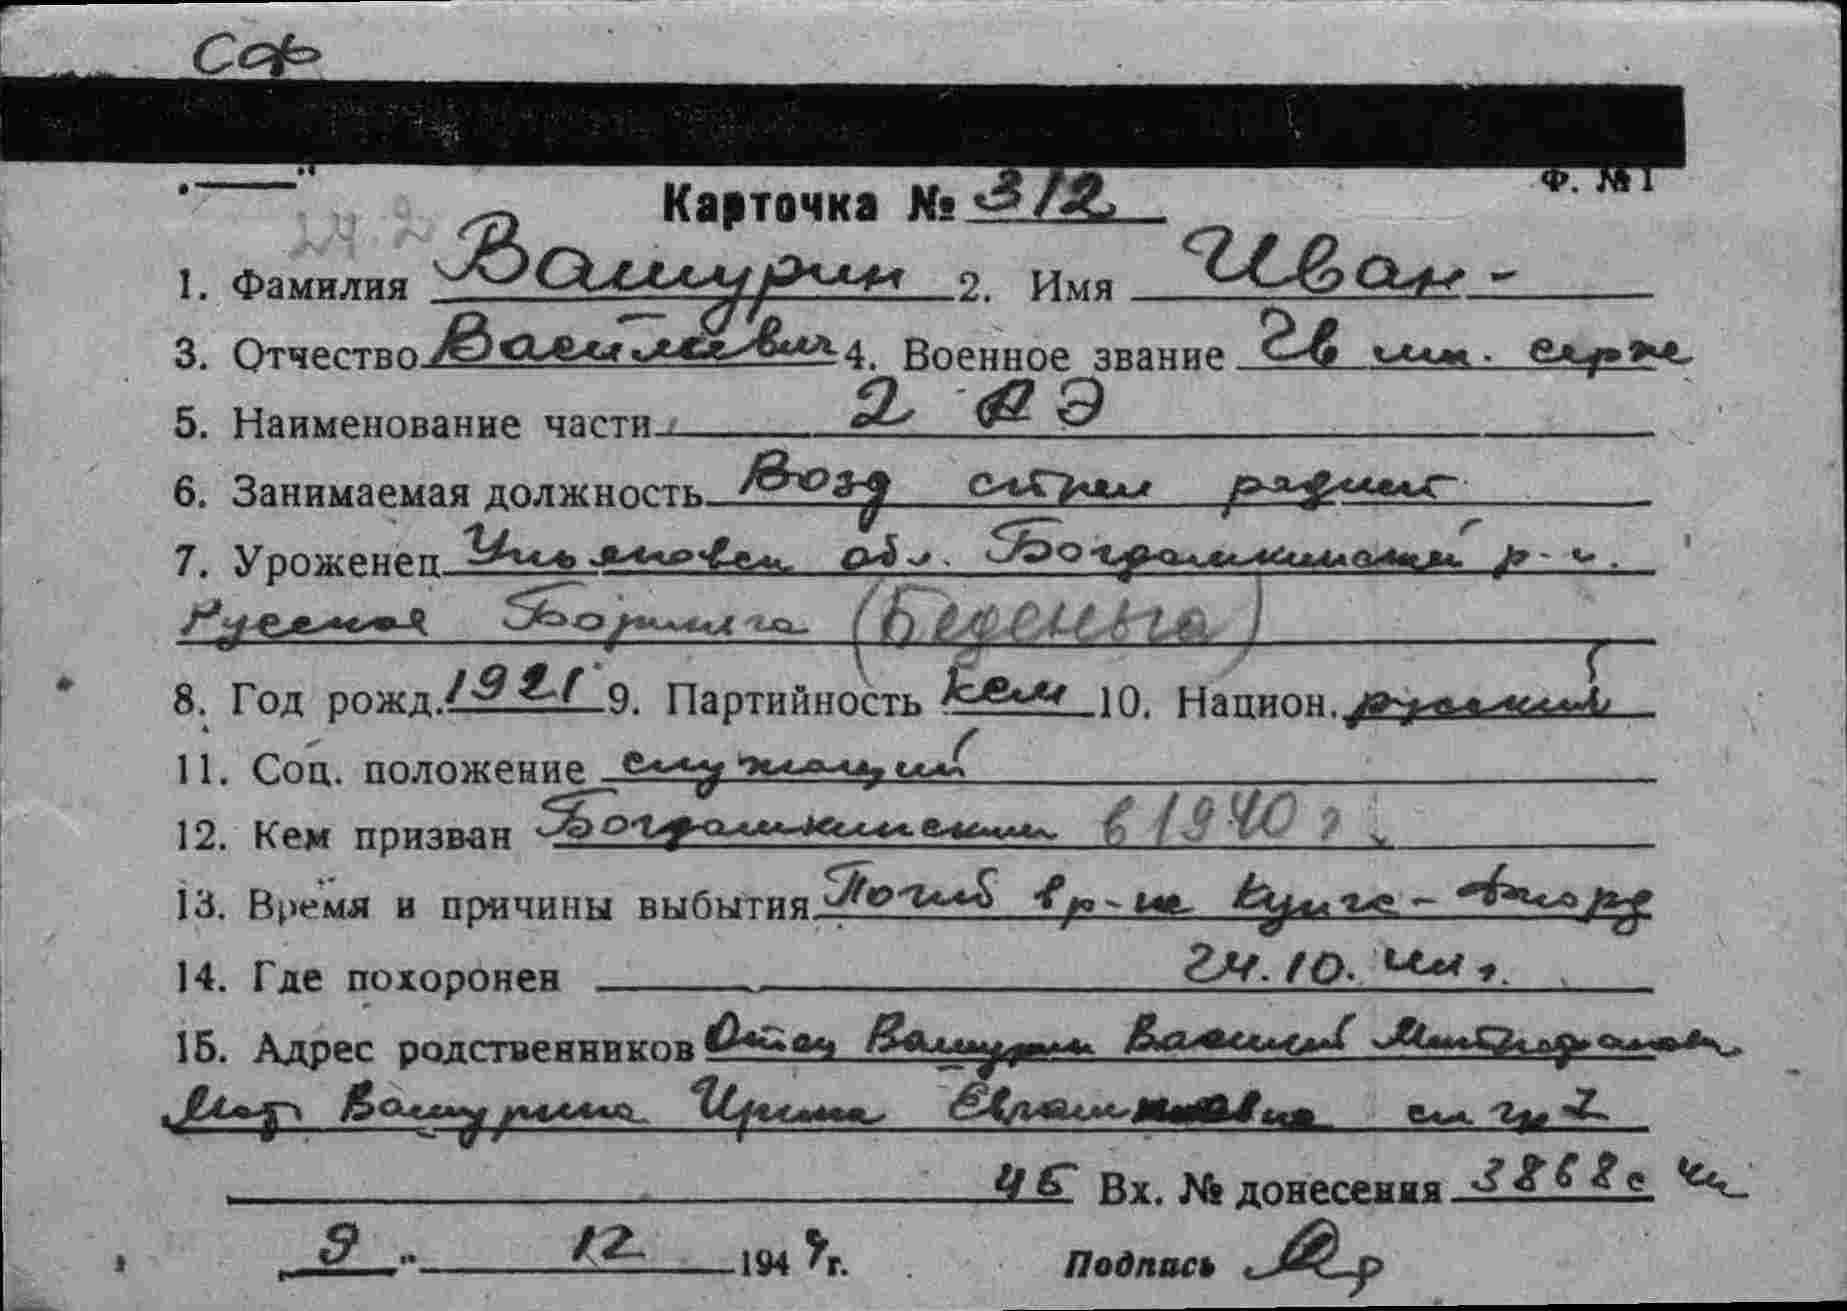 СФ
Ф. №1
Карточка № 312
24.2
1. Фамилия Вашурин 2. Имя Иван -
3. Отчество Васильевич 4. Военное звание Гв мл. серже
5. Наименование части 2 АЭ
6. Занимаемая должность Возд стрел радист
7. Уроженец Ульяновск обл. Богдашкинский р-н.
Русская (Беденьга)
8. Год рожд. 1921 9. Партийность 10. Национ. русский
11. Соц. положение служащий
12. Кем призван Богдашкинским в 1940 г.
13. Время и причины выбытия Погиб в р-не Фиорд
14. Где похоронен 24.10. 44 г.
15. Адрес родственников Отец Вашурин Василий Митрофанов
Мать Вашурина Ирина см гр 7
Вх. № донесения 3868с 44
9 " 12 1944 г. Подпись